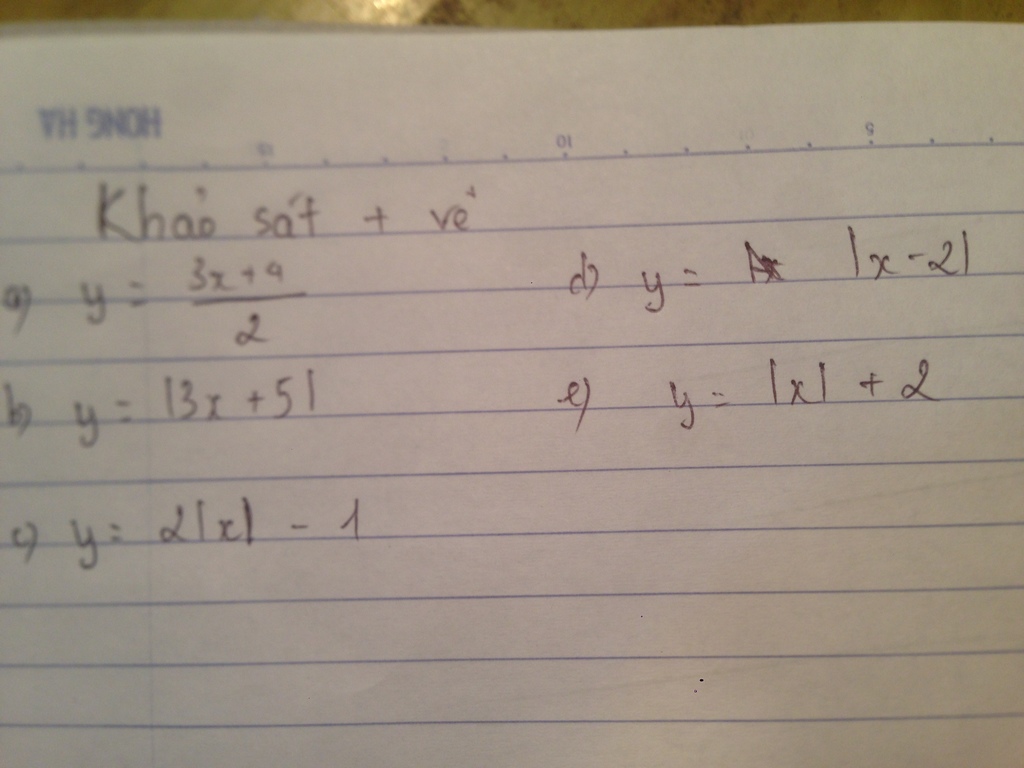 HONG HA
15 10 5
Khảo sát + vẽ
a) y = (3x+4)/2
d) y = |x-2|
b) y = |3x+5|
e) y = |x| + 2
c) y = 2|x| - 1